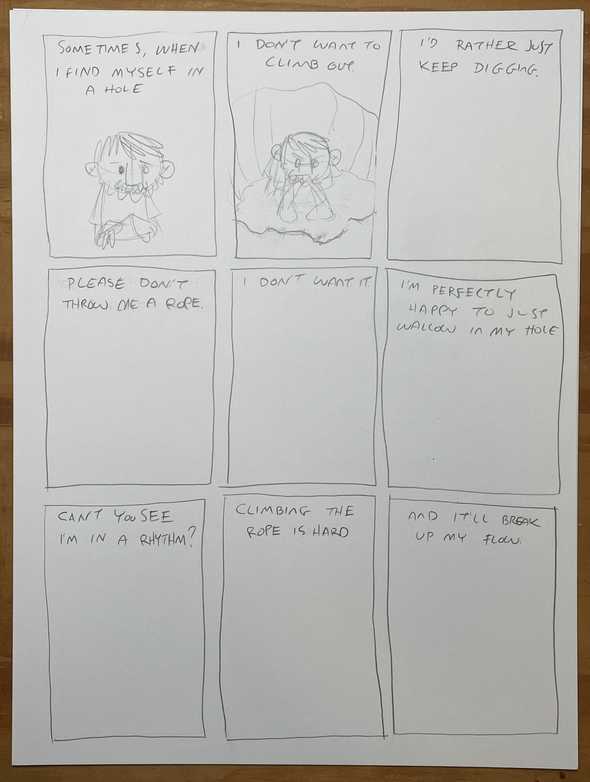 SOMETIMES, WHEN
I FIND MYSELF IN
A HOLE
I DON'T WANT TO
CLIMB OUT.
I'D RATHER JUST
KEEP DIGGING.
PLEASE DON'T
THROW ME A ROPE.
I DON'T WANT IT
I'M PERFECTLY
HAPPY TO JUST
WALLOW IN MY HOLE
CAN'T YOU SEE
I'M IN A RHYTHM?
CLIMBING THE
ROPE IS HARD
AND IT'LL BREAK
UP MY FLOW.